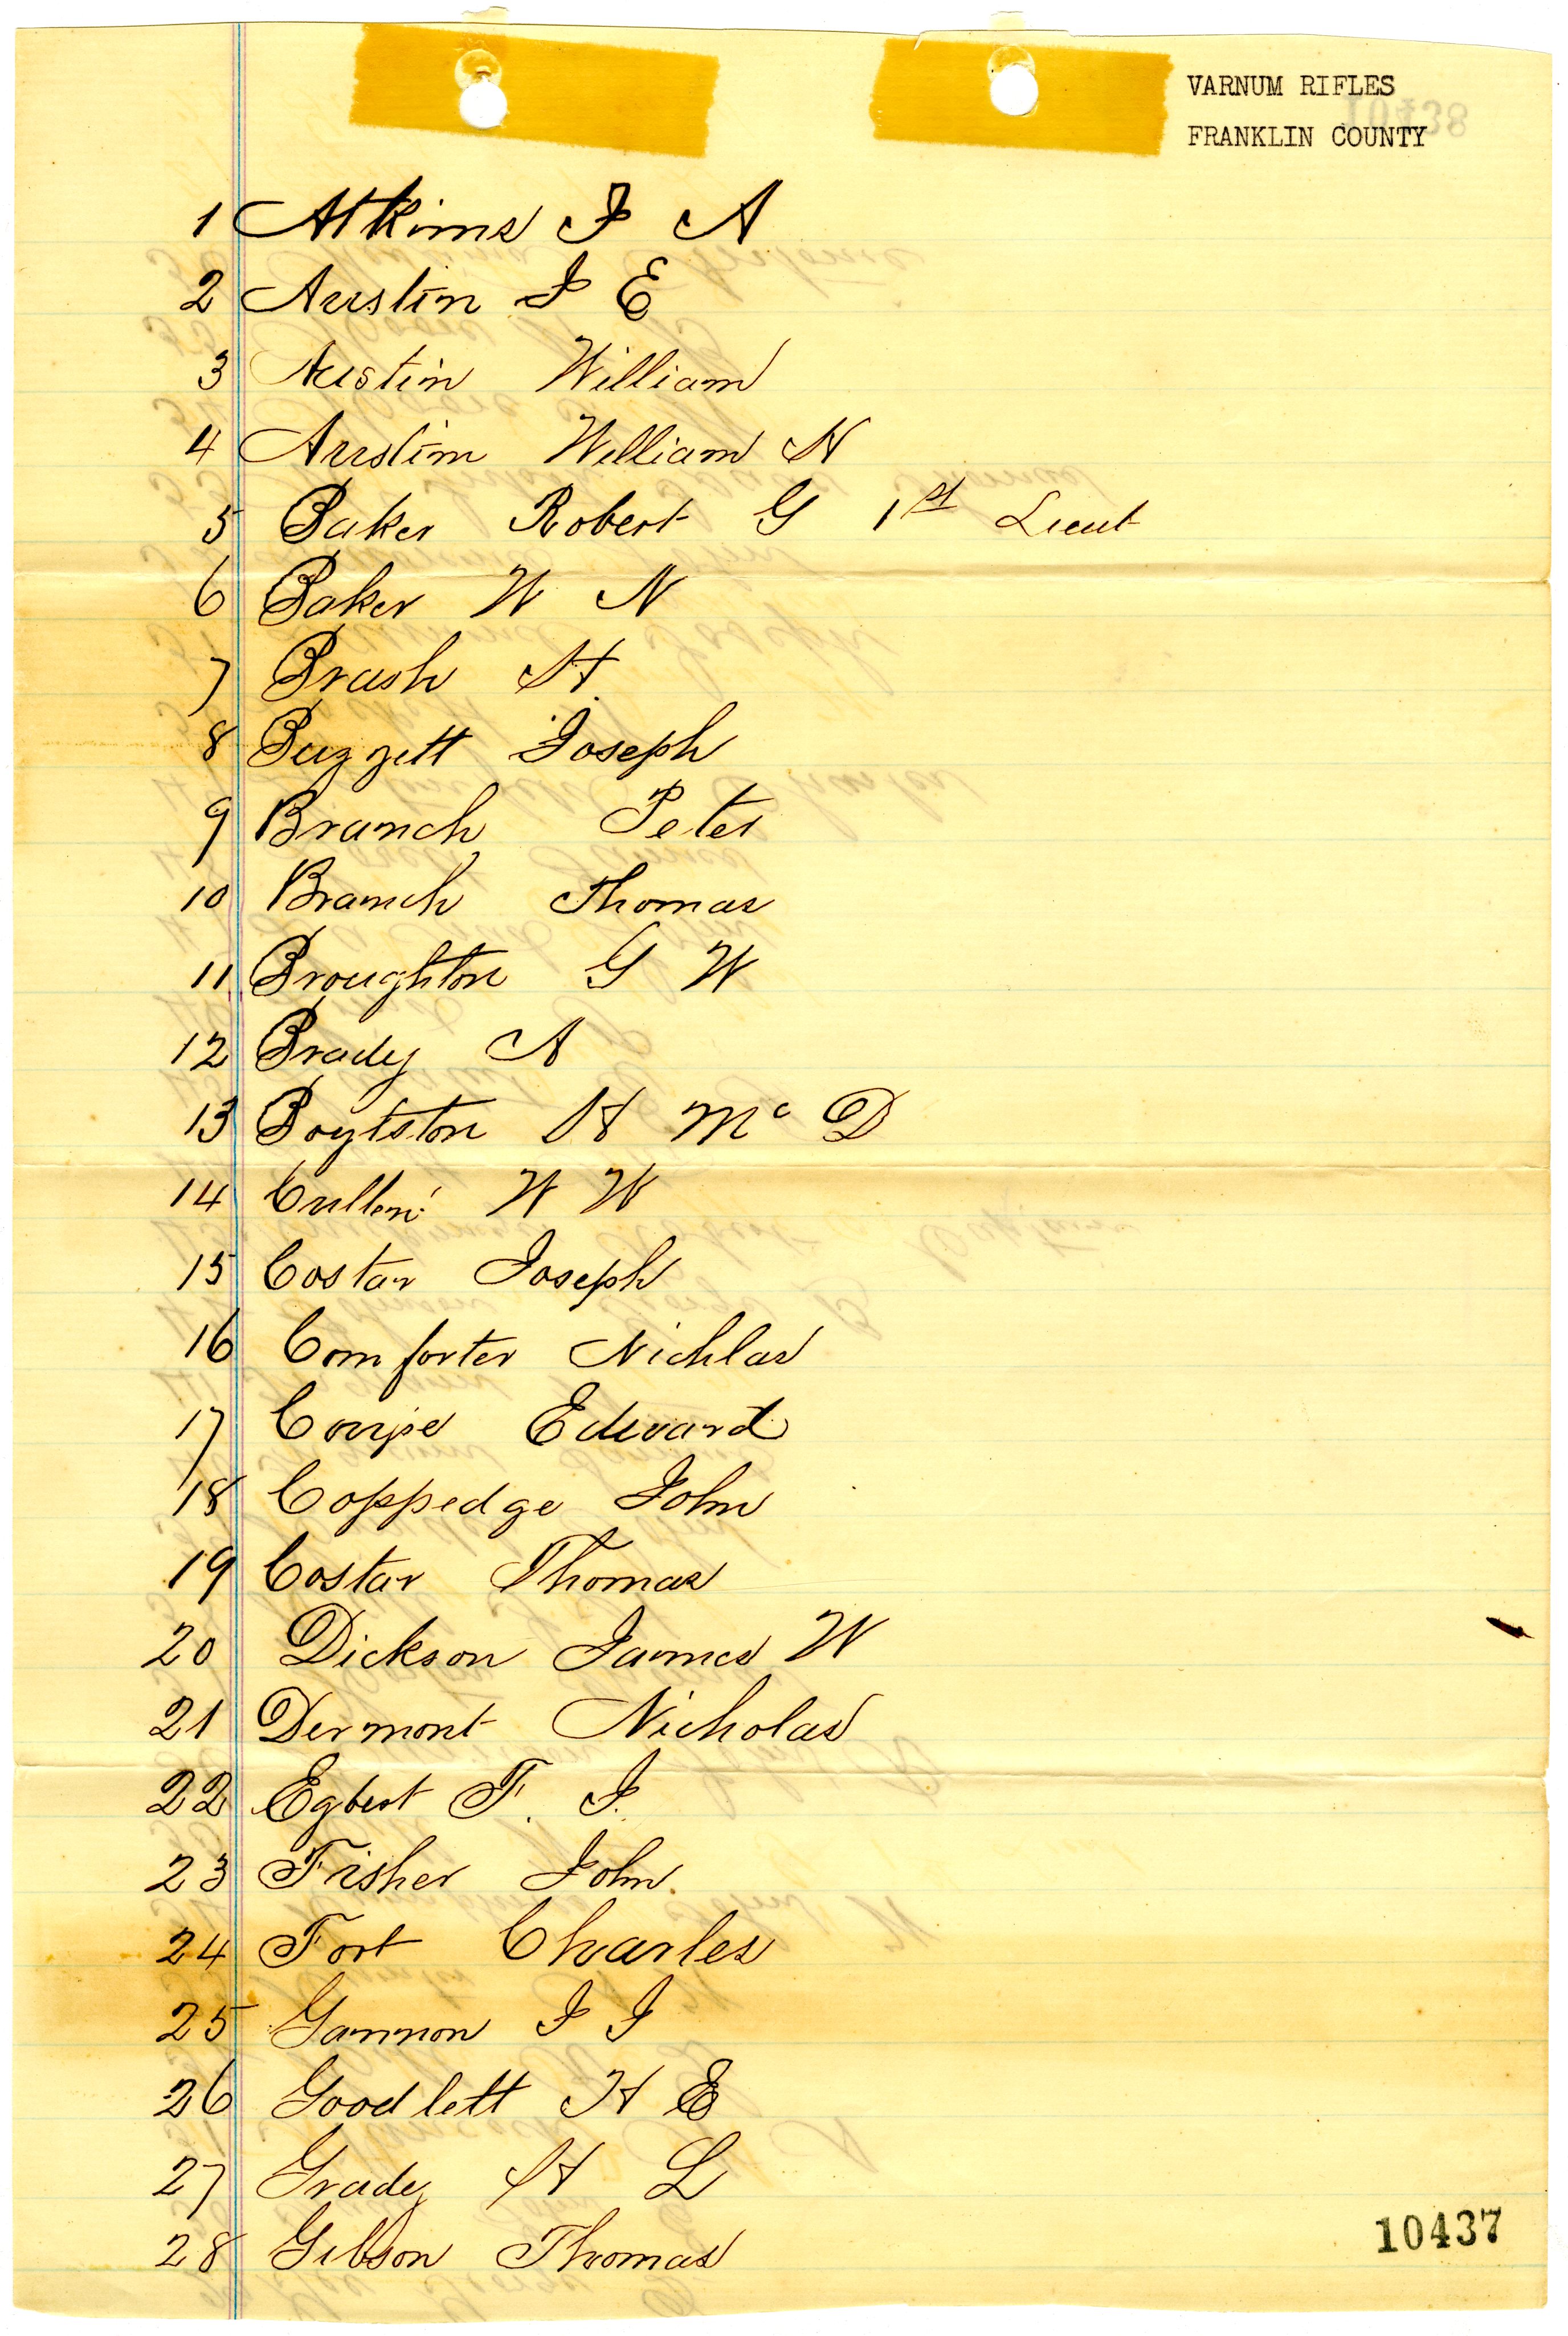 VARNUM RIFLES
10438
FRANKLIN COUNTY
1 Atkins J A
2 Austin J E
3 Austin William
4 Austin William H
5 Baker Robert G 1st Lieut
6 Baker W N
7 Brash H
8 Buzzett Joseph
9 Branch Peter
10 Branch Thomas
11 Broughton G W
12 Brady A
13 Boytston H Mc D
14 Cullen W W
15 Costar Joseph
16 Comforter Nichlas
17 Coupe Edward
18 Coppedge John
19 Costar Thomas
20 Dickson James W
21 Dermont Nicholas
22 Egbert F. J.
23 Fisher John
24 Fort Charles
25 Gannon J J
26 Goodlett H E
27 Grady H L
28 Gibson Thomas
10437